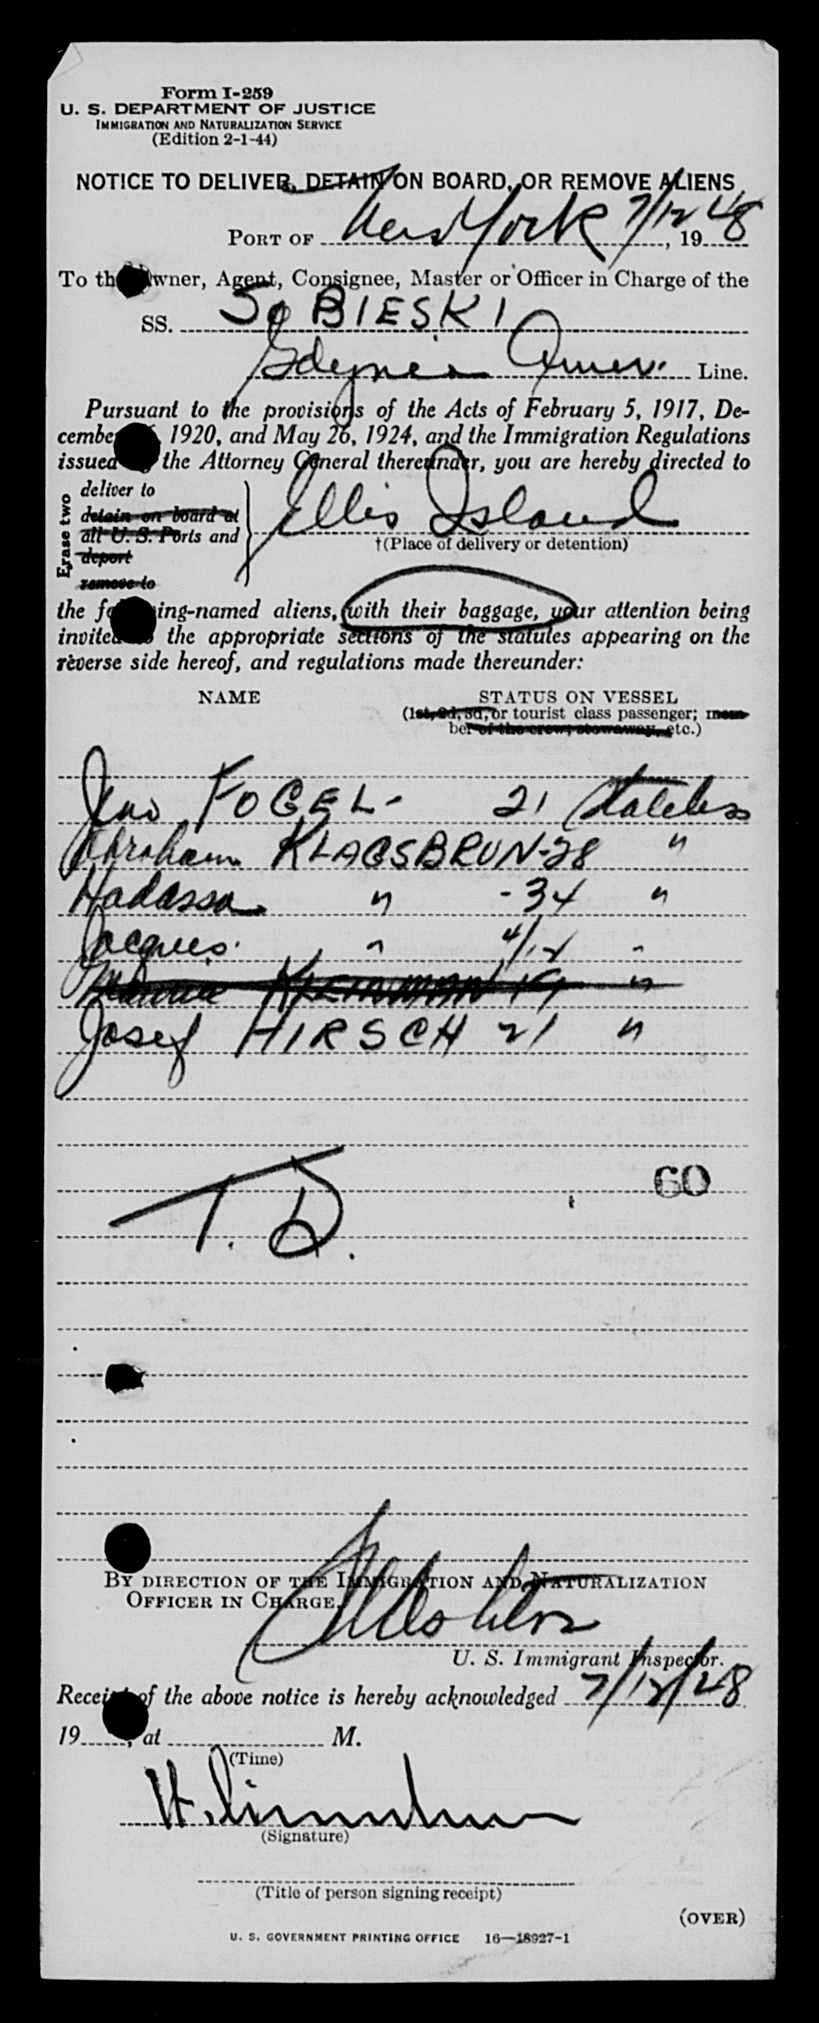 Form I-259
U. S. DEPARTMENT OF JUSTICE
IMMIGRATION AND NATURALIZATION SERVICE
(Edition 2-1-44)
NOTICE TO DELIVER, DETAIN ON BOARD, OR REMOVE ALIENS
PORT OF New York 7/12, 1948
To the Owner, Agent, Consignee, Master or Officer in Charge of the
SS. SOBIESKI
Gdynia Amer. Line.
Pursuant to the provisions of the Acts of February 5, 1917, De-
cember 1920, and May 26, 1924, and the Immigration Regulations
issued the Attorney General thereunder, you are hereby directed to
Erase two
deliver to
detain on board at
all U. S. Ports and
deport
remove to
Ellis Island
†(Place of delivery or detention)
the following-named aliens, with their baggage, your attention being
invited the appropriate sections of the statutes appearing on the
reverse side hereof, and regulations made thereunder:
NAME STATUS ON VESSEL
(1st, 2d, 3d, or tourist class passenger; mem-
ber of the crew; stowaway, etc.)
Jeno FOGEL- 21 Stateless
Abraham KLAGSBRUN-28 "
Hadassa " -34 "
Jacques " 4/12 "
KLEINMAN 19 "
Josef HIRSCH 21 "
T. D.
60
BY DIRECTION OF THE IMMIGRATION AND NATURALIZATION
OFFICER IN CHARGE.
U. S. Immigrant Inspector.
Receipt of the above notice is hereby acknowledged 7/12/48
19 , at M.
(Time)
(Signature)
(Title of person signing receipt)
(OVER)
U. S. GOVERNMENT PRINTING OFFICE 16—18927-1